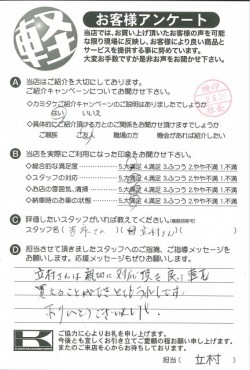 軽
お客様アンケート
当店では、お買い上げ頂いたお客様の声を可能な限り現場に反映し、お客様により良い商品とサービスを提供する事に努めています。
大変お手数ですが是非お声をお聞かせ下さい。
A 当店はご紹介を大切にしております。
ご紹介キャンペーンについてお聞かせください。
◇カミタケご紹介キャンペーンのご説明はありましたでしょうか
はい いいえ
◇具体的にご紹介頂ける方とのご関係をお聞かせ頂けますでしょうか
ご親族 ご友人 職場の方 機会があれば紹介したい
B 当店を実際にご利用になった印象をお聞かせ下さい。
◇総合的な満足度 5.大満足 4.満足 3.ふつう 2.やや不満 1.不満
◇スタッフの対応 5.大満足 4.満足 3.ふつう 2.やや不満 1.不満
◇お店の雰囲気、清掃 5.大満足 4.満足 3.ふつう 2.やや不満 1.不満
◇納車時のお車の状態 5.大満足 4.満足 3.ふつう 2.やや不満 1.不満
C 評価したいスタッフがいれば教えてください。(複数回答可)
スタッフ名
D 担当させて頂きましたスタッフへのご指摘、ご指導メッセージをお願いします。応援メッセージもぜひお願いします。
立村さんは親切に対応頂き良い車を
買えることができとてもうれしいです。
ありがとうございました。
K
ご協力に心よりお礼を申し上げます。
今後とも宜しくお引き立てご愛顧の程お願い申し上げます。
またのご来店を心からお待ちしております。
担当( 立村 )